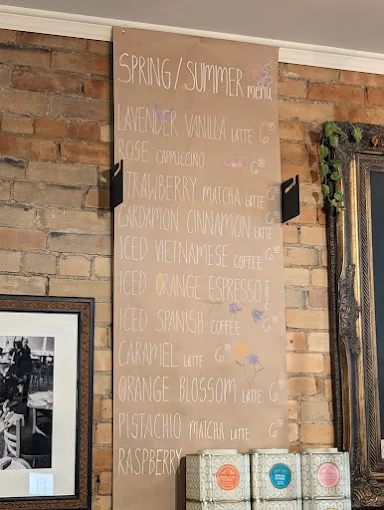 SPRING/SUMMER menu
LAVENDER VANILLA LATTE 6
ROSE CAPPUCCINO 6
STRAWBERRY MATCHA LATTE 6
CARDAMON CINNAMON LATTE 6
ICED VIETNAMESE COFFEE 6
ICED ORANGE ESPRESSO
ICED SPANISH COFFEE 6
CARAMEL LATTE 6
ORANGE BLOSSOM LATTE 6
PISTACHIO MATCHA LATTE 6
RASPBERRY